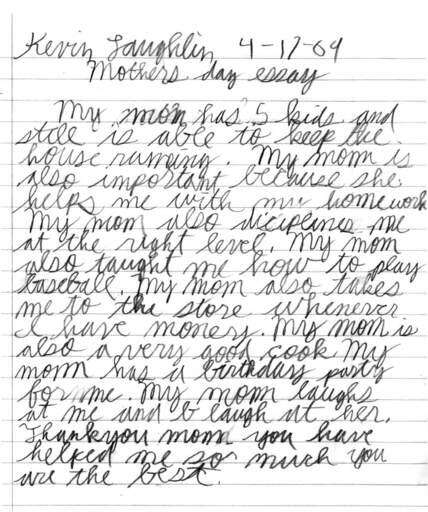 Kevin Laughlin 4-17-09
Mothers day essay
My mom has 5 kids and
still is able to keep the
house running. My mom is
also important because she
helps me with my homework
My mom also diciplines me
at the right level. My mom
also taught me how to play
baseball. My mom also takes
me to the store whenever
I have money. My mom is
also a very good cook My
mom has a birthday party
for me. My mom laughs
at me and I laugh at her.
Thankyou mom you have
helped me so much you
are the best.